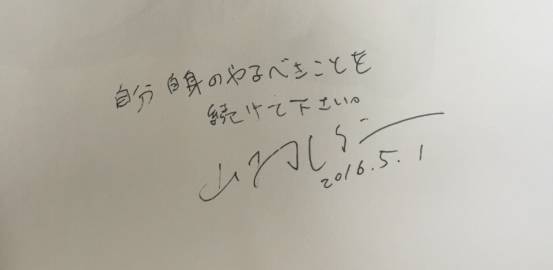 自分自身のやるべきことを
続けて下さい。
2016.5.1